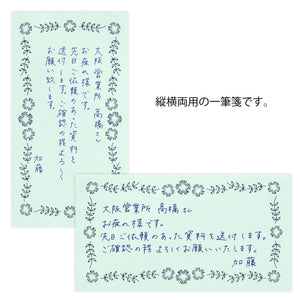 大阪営業所 高橋さん
お疲れ様です。
先日ご依頼のあった資料を
送付します。ご確認の程よろしく
お願い致します。
加藤
縦横両用の一筆箋です。
大阪営業所 高橋さん
お疲れ様です。
先日ご依頼のあった資料を送付します。
ご確認の程よろしくお願いいたします。
加藤